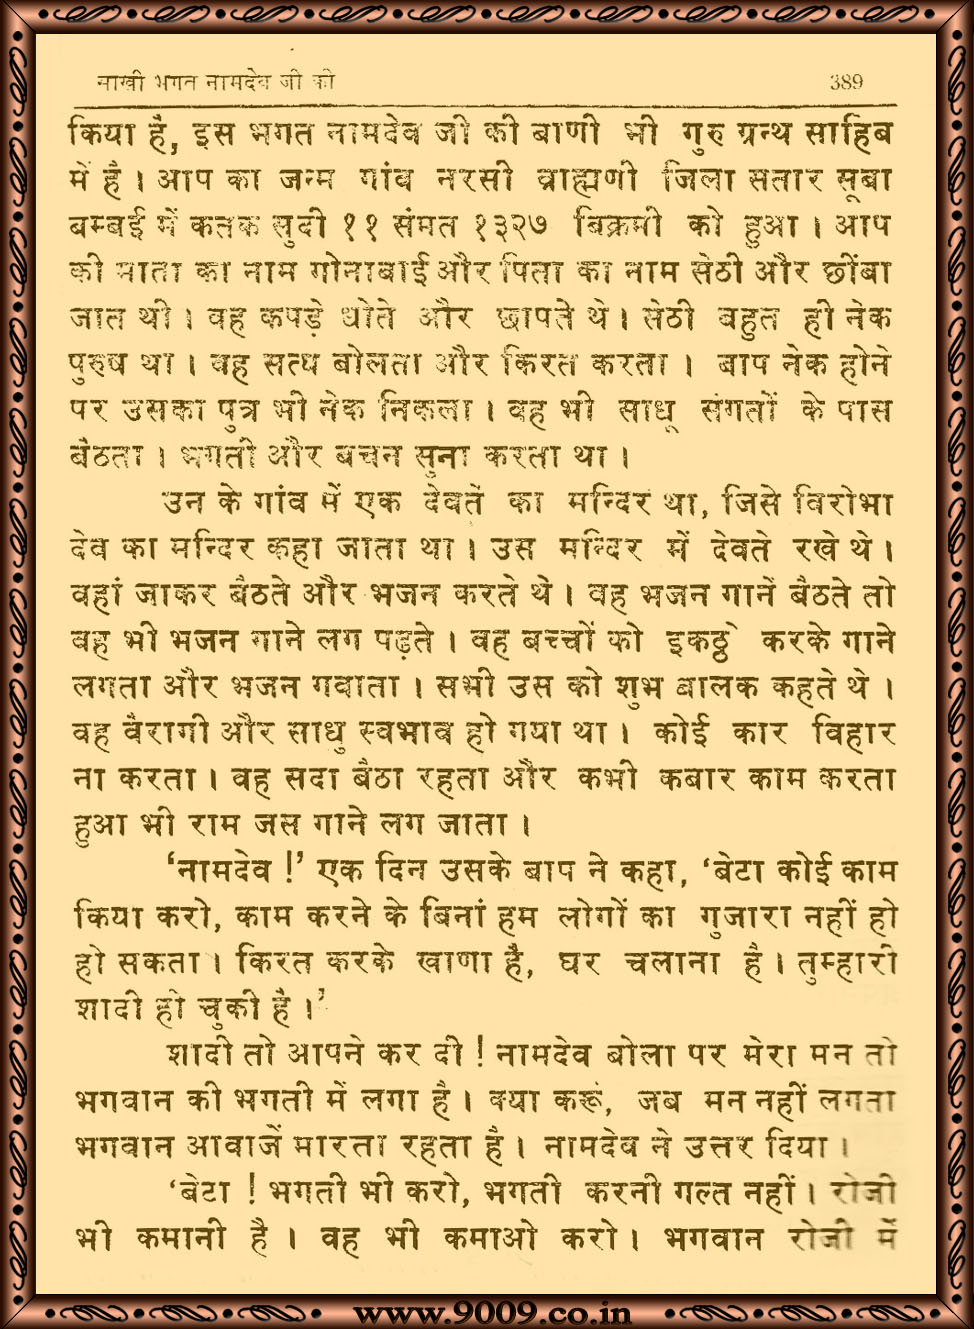 साखी भगत नामदेव जी की 389
किया है, इस भगत नामदेव जी की बाणी भी गुरु ग्रन्थ साहिब
में है । आप का जन्म गांव नरसी ब्राह्मणी जिला सतार सूबा
बम्बई में कतक सुदी ११ संमत १३२७ बिक्रमी को हुआ । आप
की माता का नाम गोनाबाई और पिता का नाम सेठी और छींबा
जात थी । वह कपड़े धोते और छापते थे । सेठी बहुत ही नेक
पुरुष था । वह सत्य बोलता और किरत करता । बाप नेक होने
पर उसका पुत्र भी नेक निकला । वह भी साधू संगतों के पास
बैठता । भगती और बचन सुना करता था ।
उन के गांव में एक देवते का मन्दिर था, जिसे बिरोभा
देव का मन्दिर कहा जाता था । उस मन्दिर में देवते रखे थे ।
वहां जाकर बैठते और भजन करते थे । वह भजन गानें बैठते तो
वह भी भजन गाने लग पढ़ते । वह बच्चों को इकठ्ठे करके गाने
लगता और भजन गवाता । सभी उस को शुभ बालक कहते थे ।
वह वैरागी और साधु स्वभाव हो गया था । कोई कार विहार
ना करता । वह सदा बैठा रहता और कभी कबार काम करता
हुआ भी राम जस गाने लग जाता ।
‘नामदेव !’ एक दिन उसके बाप ने कहा, ‘बेटा कोई काम
किया करो, काम करने के बिनां हम लोगों का गुजारा नहीं हो
हो सकता । किरत करके खाणा है, घर चलाना है । तुम्हारी
शादी हो चुकी है ।’
शादी तो आपने कर दी ! नामदेव बोला पर मेरा मन तो
भगवान की भगती में लगा है । क्या करूं, जब मन नहीं लगता
भगवान आवाजें मारता रहता है । नामदेव ने उत्तर दिया ।
‘बेटा ! भगती भी करो, भगती करनी गल्त नहीं । रोजी
भी कमानी है । वह भी कमाओ करो । भगवान रोजी में
www.9009.co.in